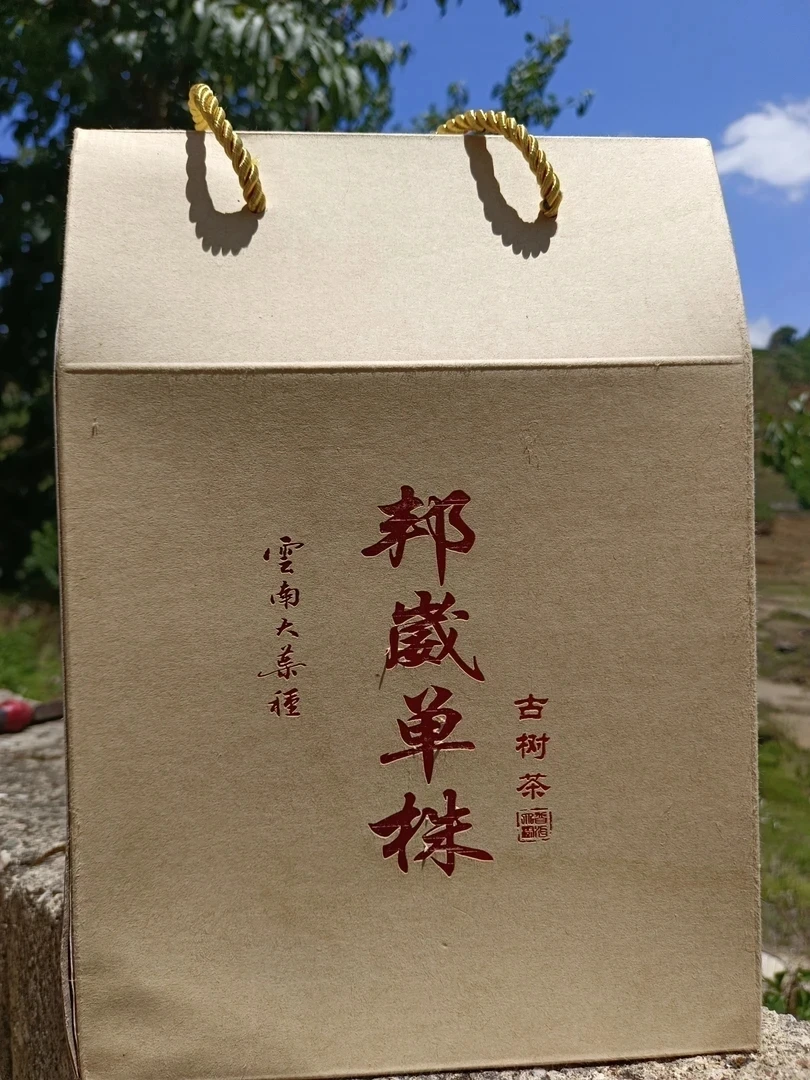 古树茶
邦崴单株
雲南大葉種